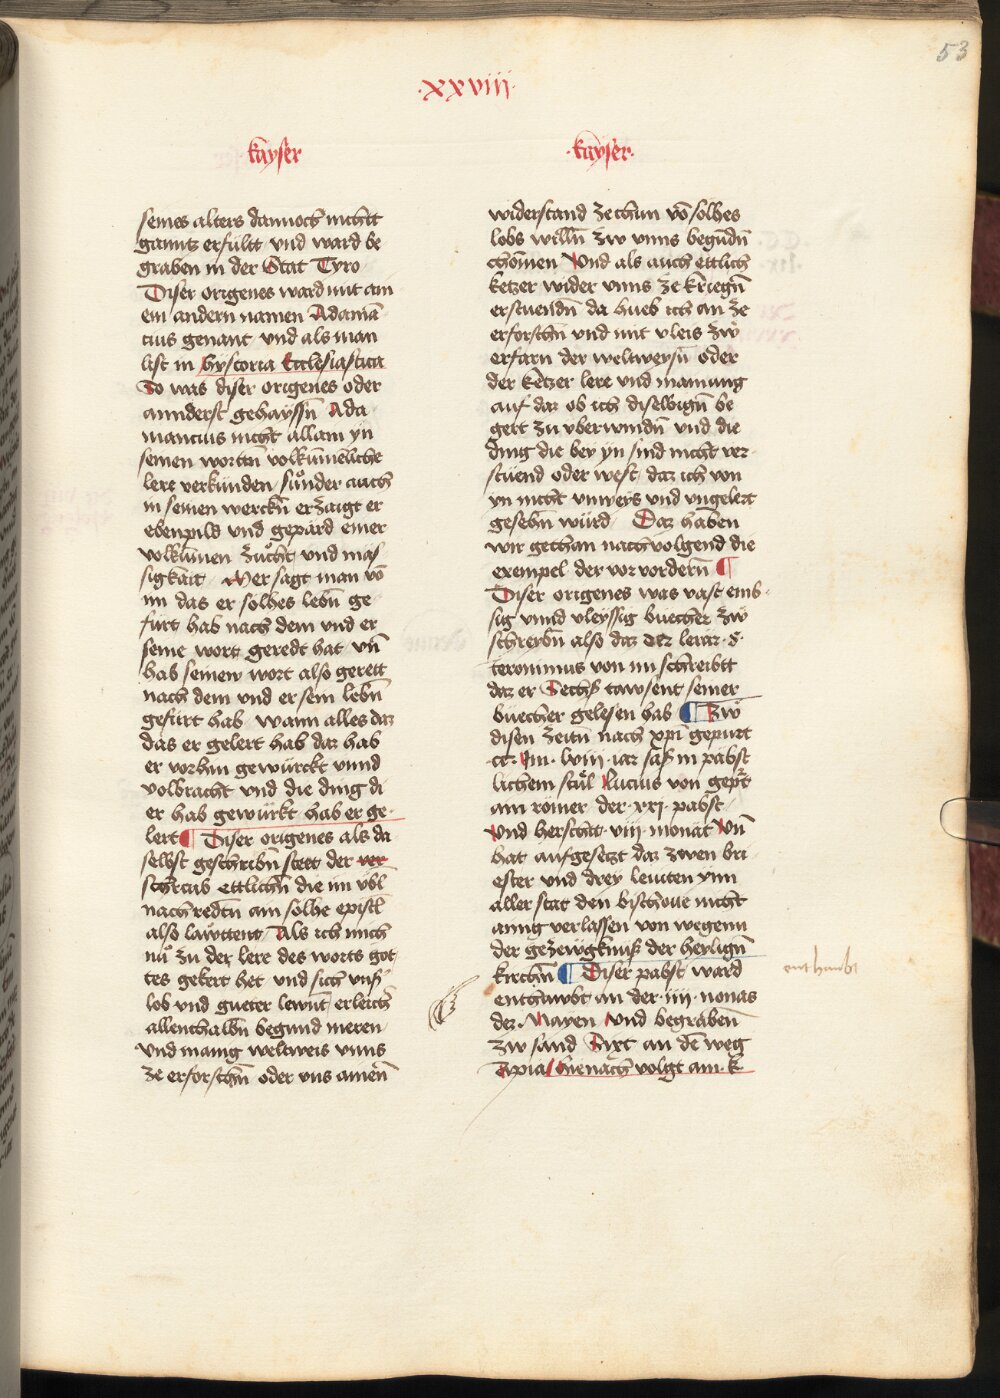 53
·xxviij·
kayser
·kayser·
seines alters dannoch nicht
ganntz erfültt vnd ward be
graben in der Stat Tyro
Diser origenes ward mit am
ein andern namen Adamā
cius genant vnd als man
list in hystoria Ecclesiastica
So was diser origenes oder
annderst gehayssn̄ Ada
mancius nicht allain yn
seinen wortn̄ volkūmenliche
lere verkünden sunder auch
in seinen werckn̄ erzaigt er
ebenpild vnd gepärd einer
volkūmen zücht vnd mäs
sigkait Mer sagt man vō
im das er solhes lebn̄ ge
fürt hab nach dem vnd er
seine wort geredt hat vn̄
hab seinew wort also gerett
nach dem vnd er sein lebn̄
gefürt hab wann alles daz
das er gelert hab daz hab
er vorhin gewürckt vnnd
volbracht vnd die ding di
er hab gewürkt hab er ge
lert ¶ Diser origenes als da
selbst geschribn̄ stett der ver
schraib ettlichn̄ die im vbl
nachredtn̄ ain solhe epistl
also lawttent Als ich mich
nu zu der lere des worts got
tes gekert het vnd sich vnß
lob vnd gueter lewnt erleich
allenthalbn̄ begund meren
Vnd manig weltweis vnns
ze erforschn̄ oder vns ainen̄
widerstand ze thun vō solhes
lobs willn̄ zw vnns begūdn̄
chömen Vnd als auch ettlich
ketzer wider vnns ze kriegn̄
erstuendn̄ da hueb ich an ze
erforschn̄ vnd mit vleis zw
erfarn der weltweysn̄ oder
der ketzer lere vnd mainung
auf daz ob ich dieselbign̄ be
gert zu vberwindn̄ vnd die
ding die bey yn sind nicht ver
stüend oder west daz ich von
yn nicht vnweis vnd vngelert
gesehn̄ würd Daz haben
wir gethan nachvolgend die
exempel der vorvordern̄ ¶
Diser origenes was vast emb
sig vnnd vleyssig buecher zw
schreybn̄ also daz der lerar S
Jeronimus von im schreibtt
daz er Sechß tawsent seiner
büecher gelesen hab ¶ Zw
disen zeitn̄ nach xp̄i gepurt
cc· Im· lviij· iar saß in päbst
lichem stül Lucius von gep̄t
ain römer der·xxj·pabst
Vnd herschtt viij monät Vn̄
hat aufgesetzt daz zwen bri
ester vnd drey leuiten ynn
aller stat den bischoue nicht
ainig verlassen von wegenn
der gezewgknuß der heylign̄
kirchn̄ ¶ Diser pabst ward
enthawbt an der·iiij·nonas
dez· Mayen Vnd begraben̄
zw sand Sixt an dē weg
Apia hienach volgt ain·k·
enthaubt